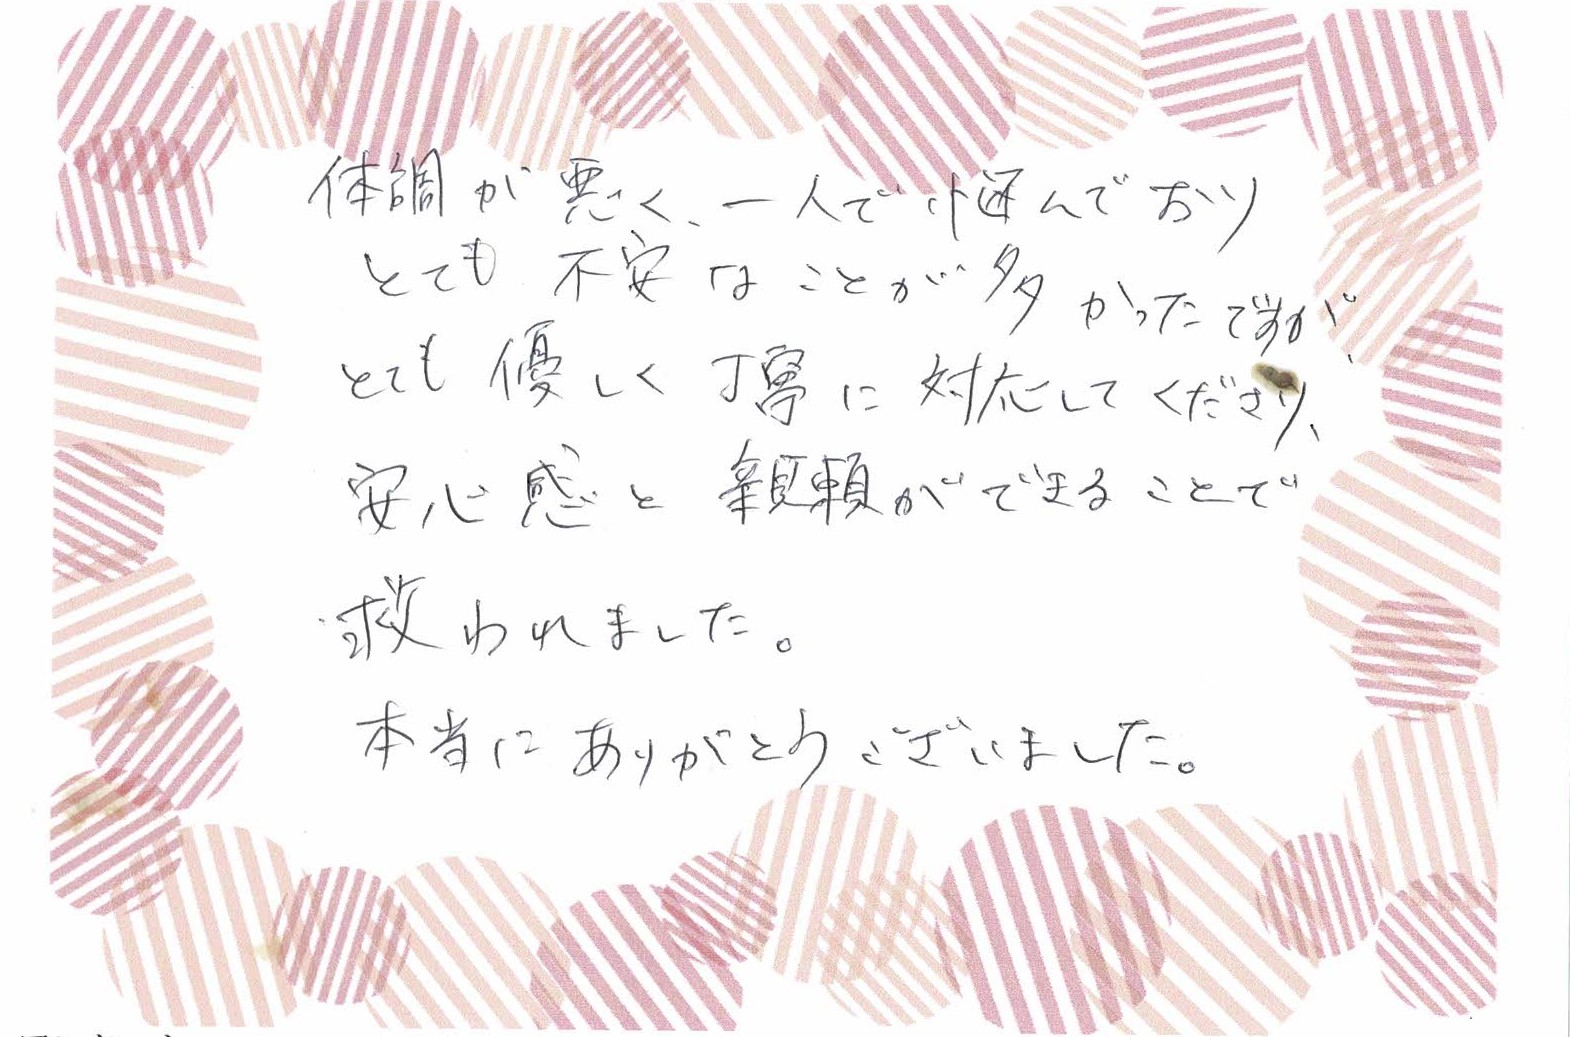 体調が悪く、一人で悩んでおり
とても不安なことが多かったですが、
とても優しく丁寧に対応してくださり、
安心感と親頼ができることで
救われました。
本当にありがとうございました。